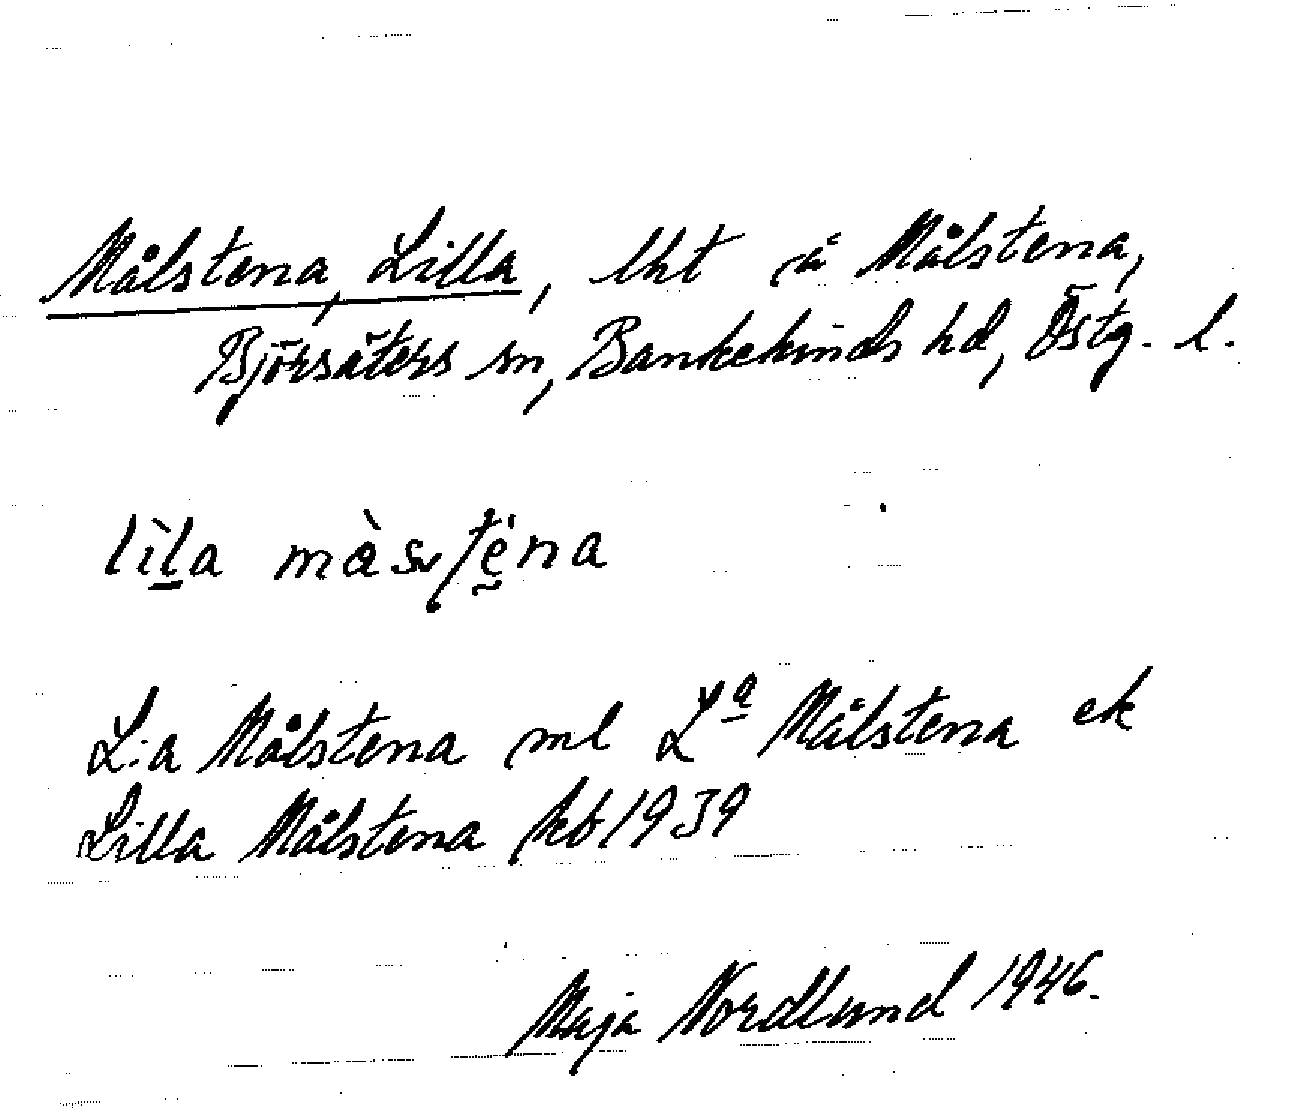 Målstena, Lilla, lht å Målstena,
Björsäters sn, Bankekinds hd, Östg. l.
lìla màstena
L:a Målstena ml Lª Målstena ek
Lilla Målstena kb 1939
Maja Nordlund 1946.